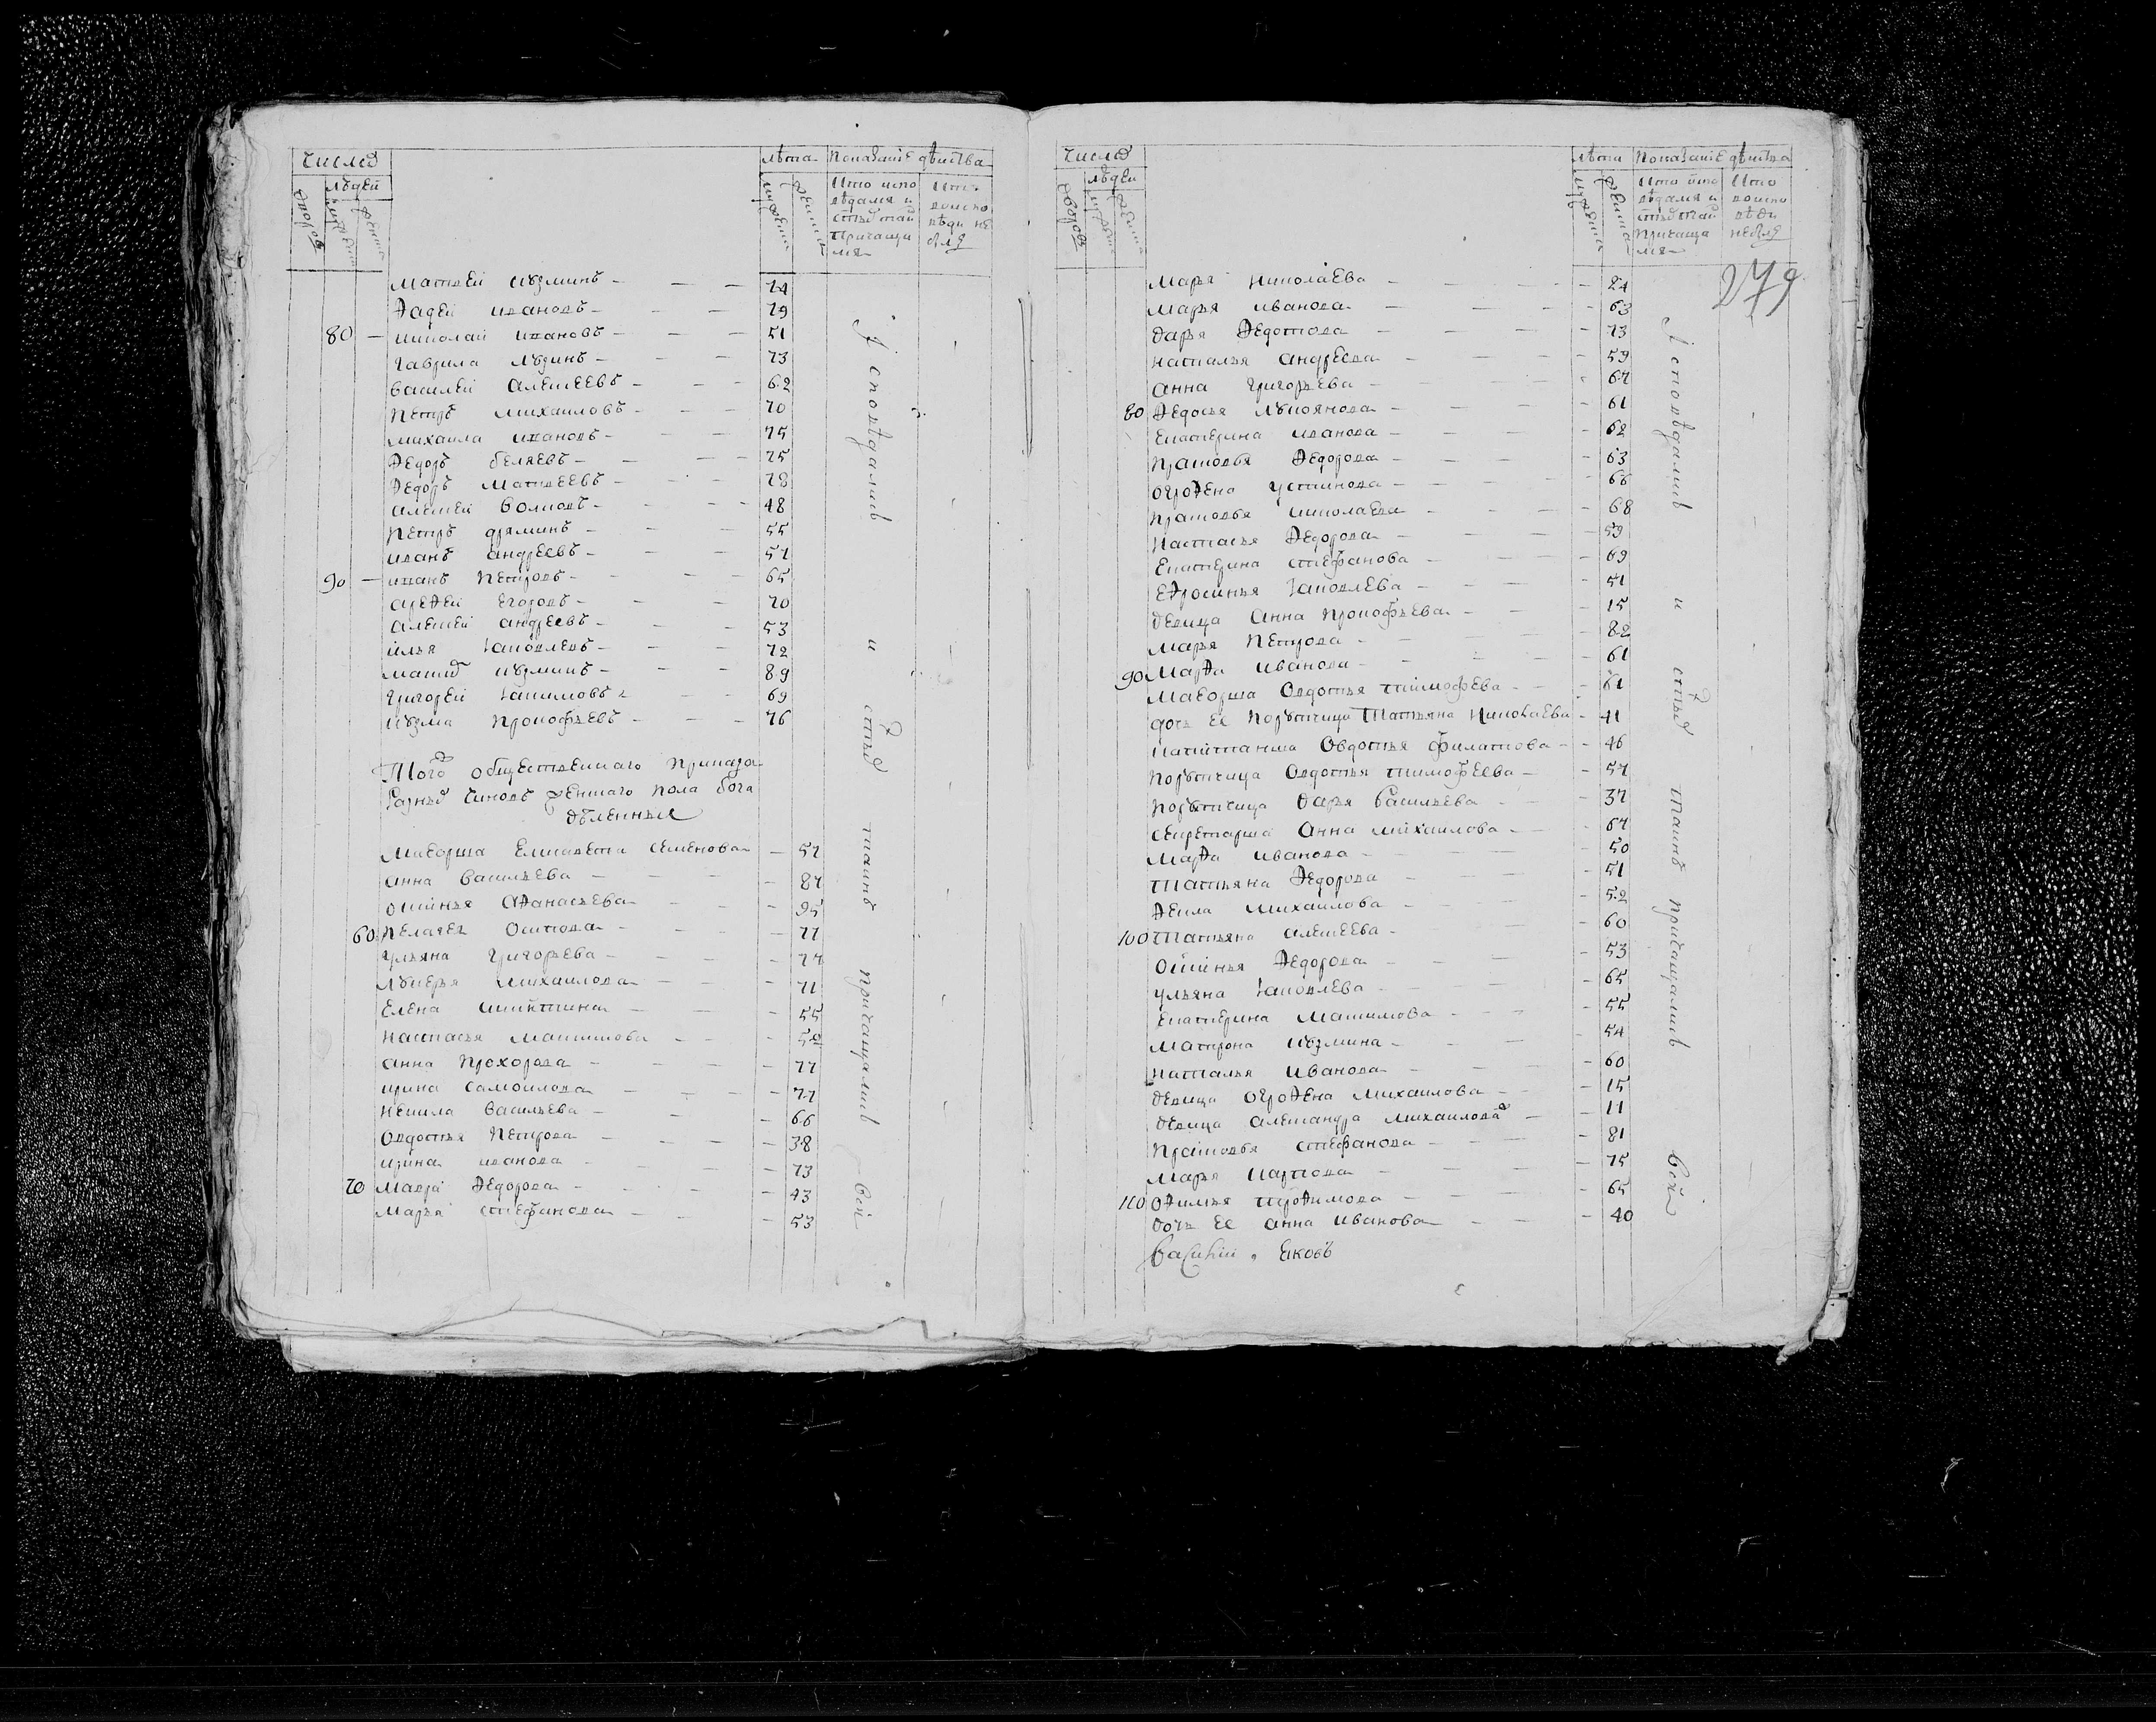 Число
людей
дворовъ
мужеска
женска
лѣта
Показаніе дѣйства
мужеска
женска
Кто испо
вѣдался и
стыхъ таи
Причаща
лся
Кто
воиспо
вѣди не
былъ
Матвей Кузминъ 74
Фадей Ивановъ 79
80 Николай Ивановъ 51
Гаврила Лукинъ 73
Василей Алексеевъ 62
Петръ Михаиловъ 70
Михаила Ивановъ 75
Федоръ беляевъ 75
Федоръ Матвеевъ 78
Алексей Волковъ 48
Петръ 55
Иванъ Андреевъ 57
90 Иванъ Петровъ 65
Арефей Егоровъ 70
Алексей Андреевъ 53
Илья Яковлевъ 72
Кузминъ 89
Григорей Якимовъ 69
Кузма Прокофьевъ 76
Того общественнаго Приказа
Разныхъ чиновъ женскаго пола бога
дѣленныя
Маеорша Елисавета Семенова 57
Анна Васильева 87
Оксинья Афанасьева 95
60 Пелагея Осипова 77
Ульяна Григорьева 77
Лукерья Михаилова 71
Елена Никитина 55
Настасья Максимова 52
Анна Прохорова 77
Ирина Самоилова 77
Ненила Васильева 66
Овдотья Петрова 38
Ирина Иванова 73
70 Мавра Федорова 43
Марья Стефанова 53
Исповѣдались и стыхъ таинъ причащались вси
Число
людей
дворовъ
мужеска
женска
лѣта
Показаніе дѣйства
мужеска
женска
Кто испо
вѣдался и
стыхъ таи
Причаща
лся
Кто
воиспо
вѣди
небылъ
279
Марья Николаева 24
Марья Иванова 63
Дарья Федотова 73
Наталья Андреева 59
Анна Григорьева 67
80 Федосья Лукоянова 61
Екатерина Иванова 62
Прасковья Федорова 63
Огрофена Устинова 66
Прасковья Николаева 68
Настасья Федорова 59
Екатерина Стефанова 69
Ефросинья Яковлева 51
Девица Анна Прокофьева 15
Марья Петрова 82
90 Марфа Иванова 61
Маеорша Овдотья Тимофеева 61
Дочь ее Порутчица Татьяна Николаева 41
Капитанша Овдотья Филатова 46
Порутчица Овдотья Тимофеева 57
Порутчица Дарья Васильева 37
Секретарша Анна Михаилова 67
Марфа Иванова 50
Татьяна Федорова 51
Фекла Михаилова 52
100 Татьяна Алексеева 60
Оксинья Федорова 53
Ульяна Яковлева 65
Екатерина Максимова 55
Матрона Кузмина 54
Наталья Иванова 60
Девица Огрофена Михаилова 15
Девица Александра Михаилова 11
Прасковья Стефанова 81
Марья Карпова 75
110 Офимья Трофимова 65
Дочь ее Анна Иванова 40
Василій Яковъ
Исповѣдались и стыхъ таинъ причащались вси